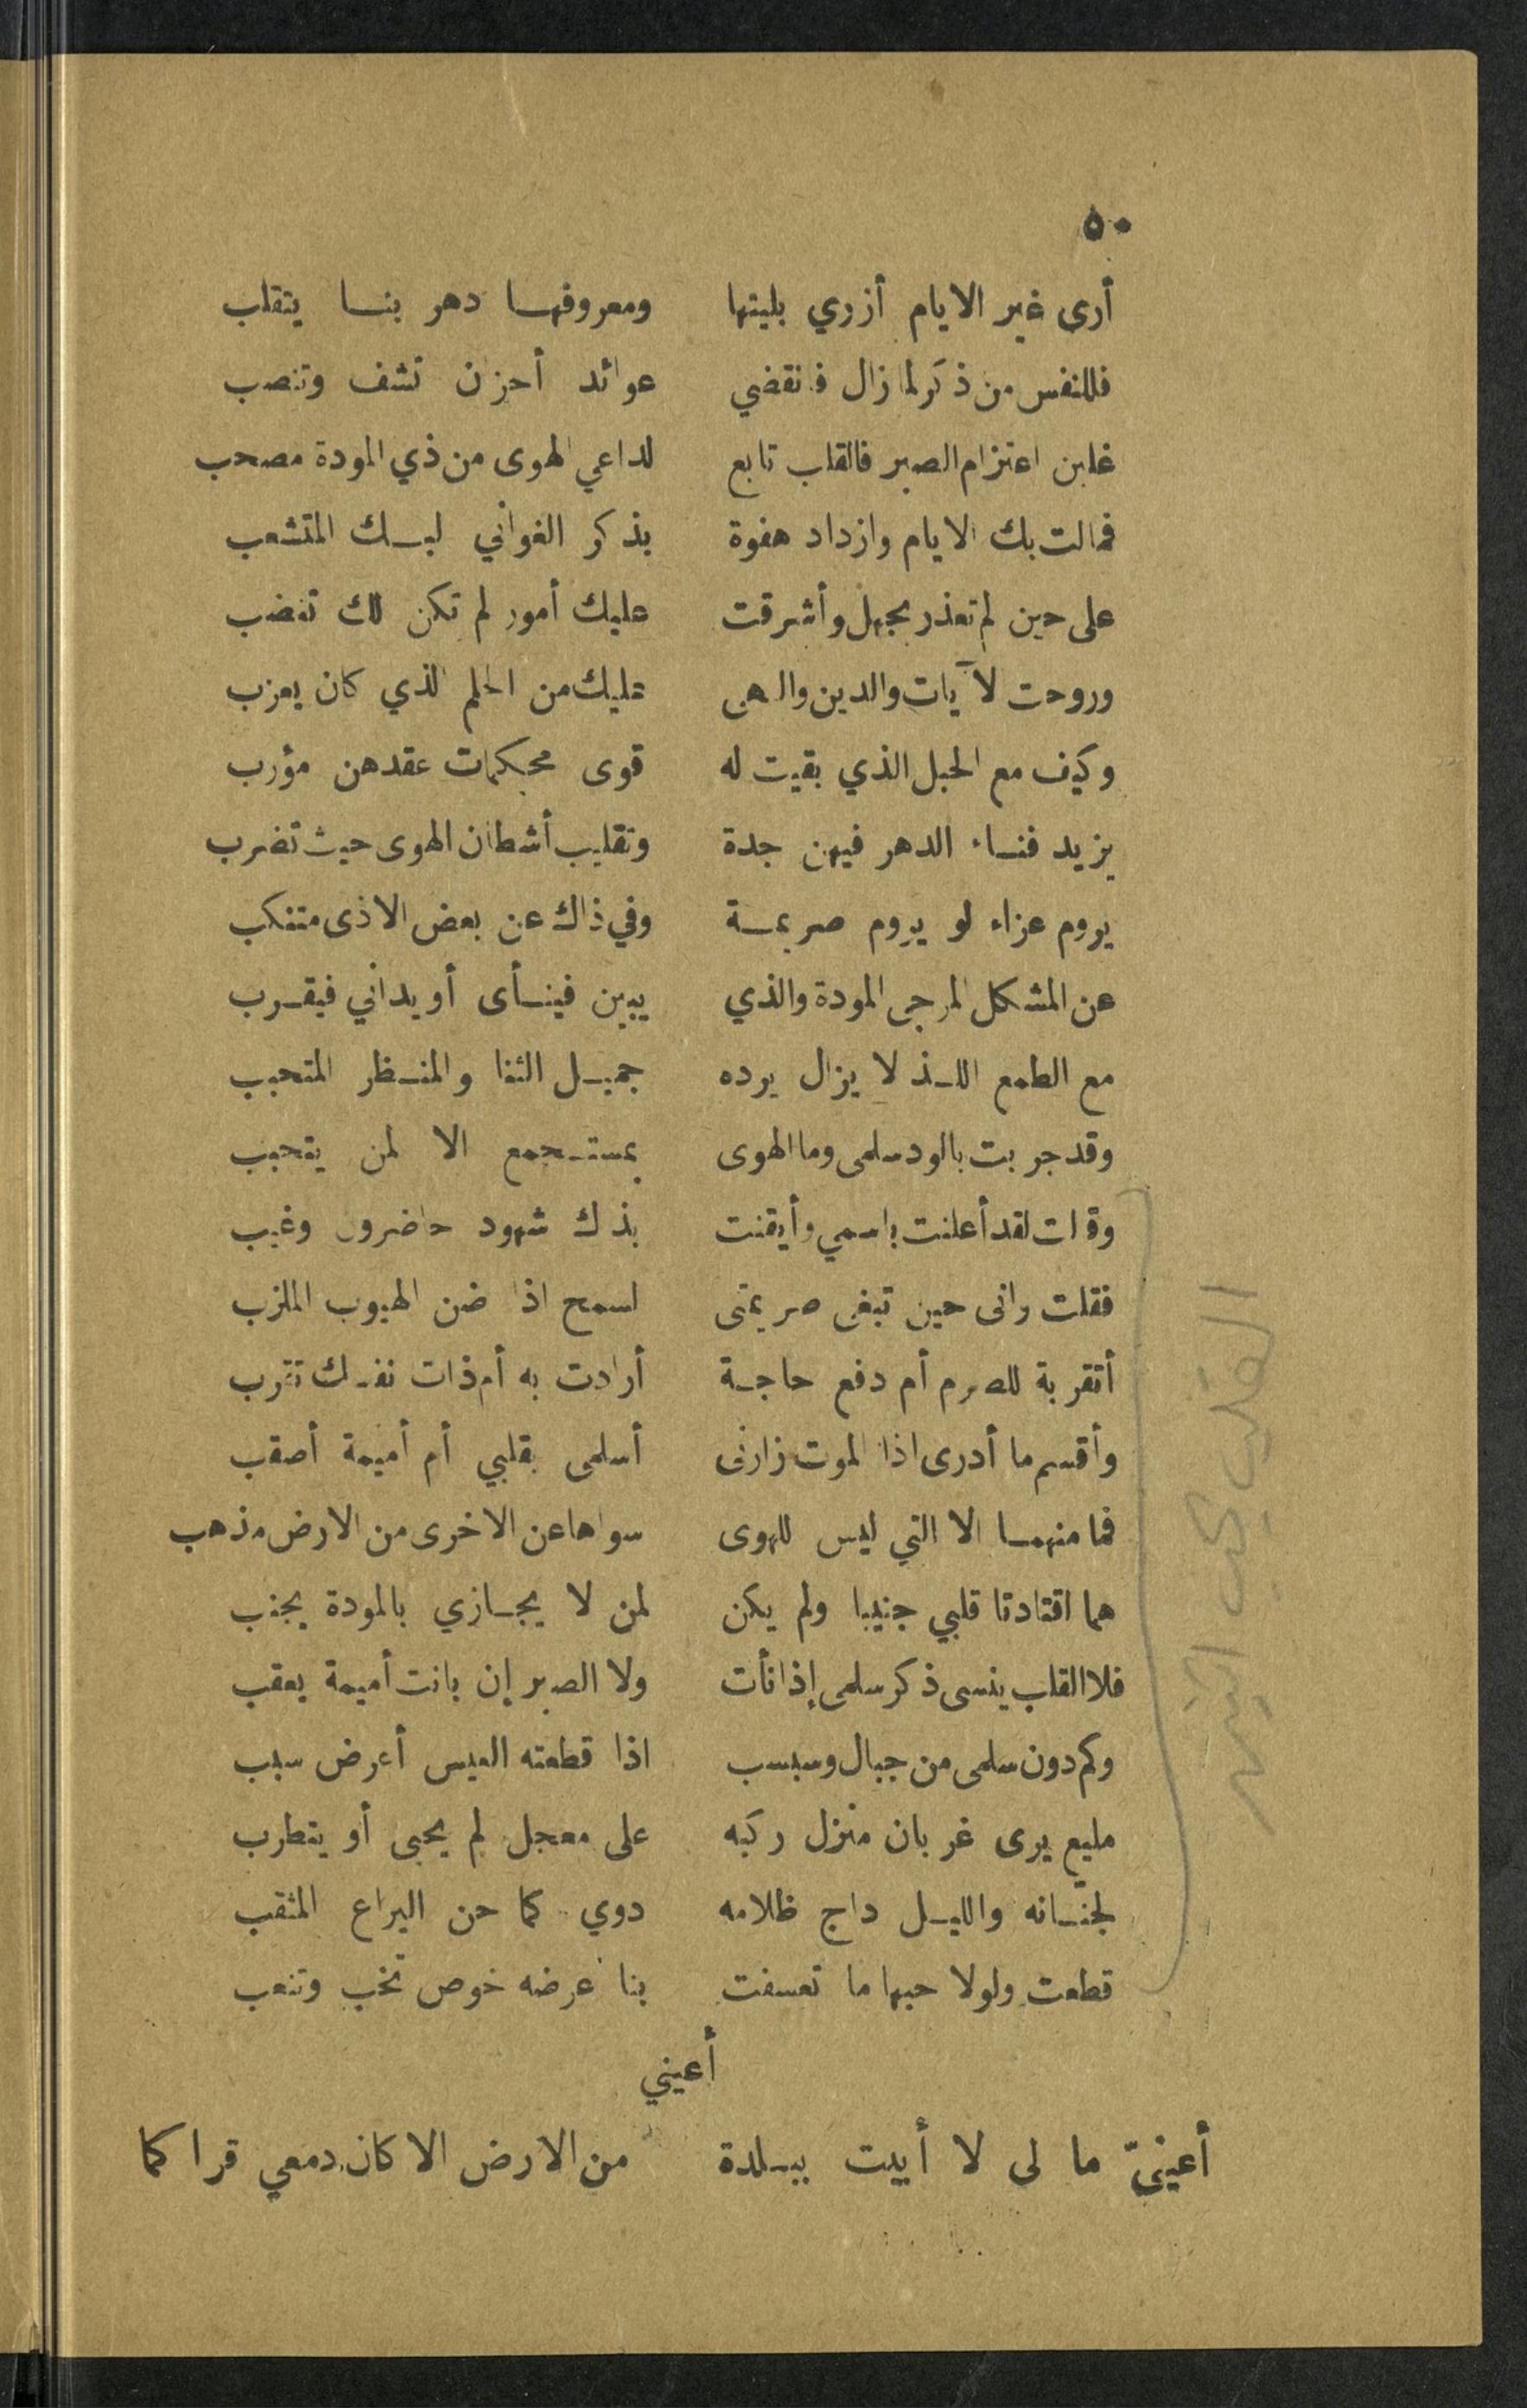 ٥٠
أرى غير الايام أزري بليتها ومعروفها دهر بنا يتقلب
فللنفس من ذكر لما زال فانقضي عوائد أحزن تشف وتنصب
غلبن اعتزام الصبر فالقلب تابع لداعي الهوى من ذي المودة مصحب
فمالت بك الايام وازداد هفوة بذكر الغواني لبك المتشعب
على حين لم تعذر بجهل وأشرقت عليك أمور لم تكن لك تغضب
وروحت لآيات والدين والهى عليك من الحلم الذي كان يعزب
وكيف مع الحبل الذي بقيت له قوى محكمات عقدهن مؤرب
يزيد فناء الدهر فيهن جدة وتقليب أشطان الهوى حيث تضرب
يروم عزاء لو يروم صريمة وفي ذاك عن بعض الاذى متنكب
عن المشكل المرجى المودة والذي يبين فينأى أو يداني فيقرب
مع الطمع اللذ لا يزال يرده جميل الثنا والمنظر المتحبب
وقد جربت بالود سلمى وما الهوى بمستجمع الا لمن يتحبب
وقالت لقد أعلنت باسمي وأيقنت بذك شهود حاضرون وغيب
فقلت وانى حين تبغى صريمتى اسمح اذا ضن الهيوب الملزب
أتقربة للصرم أم دفع حاجة أرادت به أم ذات نفسك تترب
وأقسم ما أدرى اذا الموت زارنى أسلمى بقلبي أم أميمة أصقب
فما منهما الا التي ليس للهوى سواها عن الاخرى من الارض مذهب
هما اقتادتا قلبي جنيبا ولم يكن لمن لا يجازي بالمودة يجنب
فلا القلب ينسى ذكر سلمى إذا نأت ولا الصبر إن بانت أميمة يعقب
وكم دون سلمى من جبال وسبسب اذا قطعته العيس أعرض سبب
مليع يرى غربان منزل ركبه على معجل لم يحى أو يتطرب
لجنانه والليل داج ظلامه دوي كما حن اليراع المثقب
قطعت ولولا حبها ما تعسفت بنا عرضه خوص تخب وتنعب
أعيني
أعينىّ ما لى لا أبيت ببلدة من الارض الا كان دمعي قرا كما